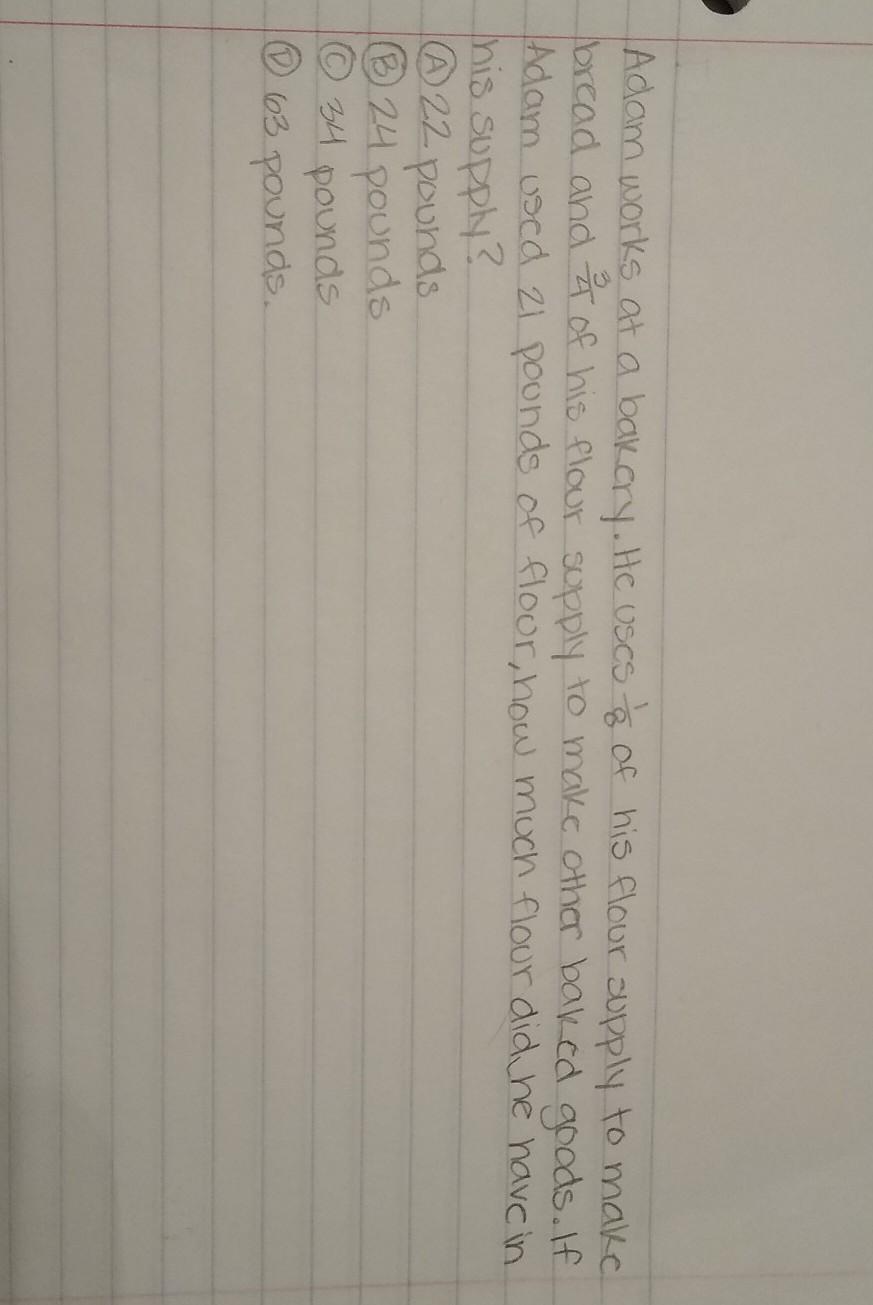 Adam works at a bakery. He uses 1/8 of his flour supply to make
bread and 3/4 of his flour supply to make other baked goods. If
Adam used 21 pounds of flour, how much flour did he have in
his supply?
Ⓐ 22 pounds
Ⓑ 24 pounds
Ⓒ 34 pounds
Ⓓ 63 pounds.